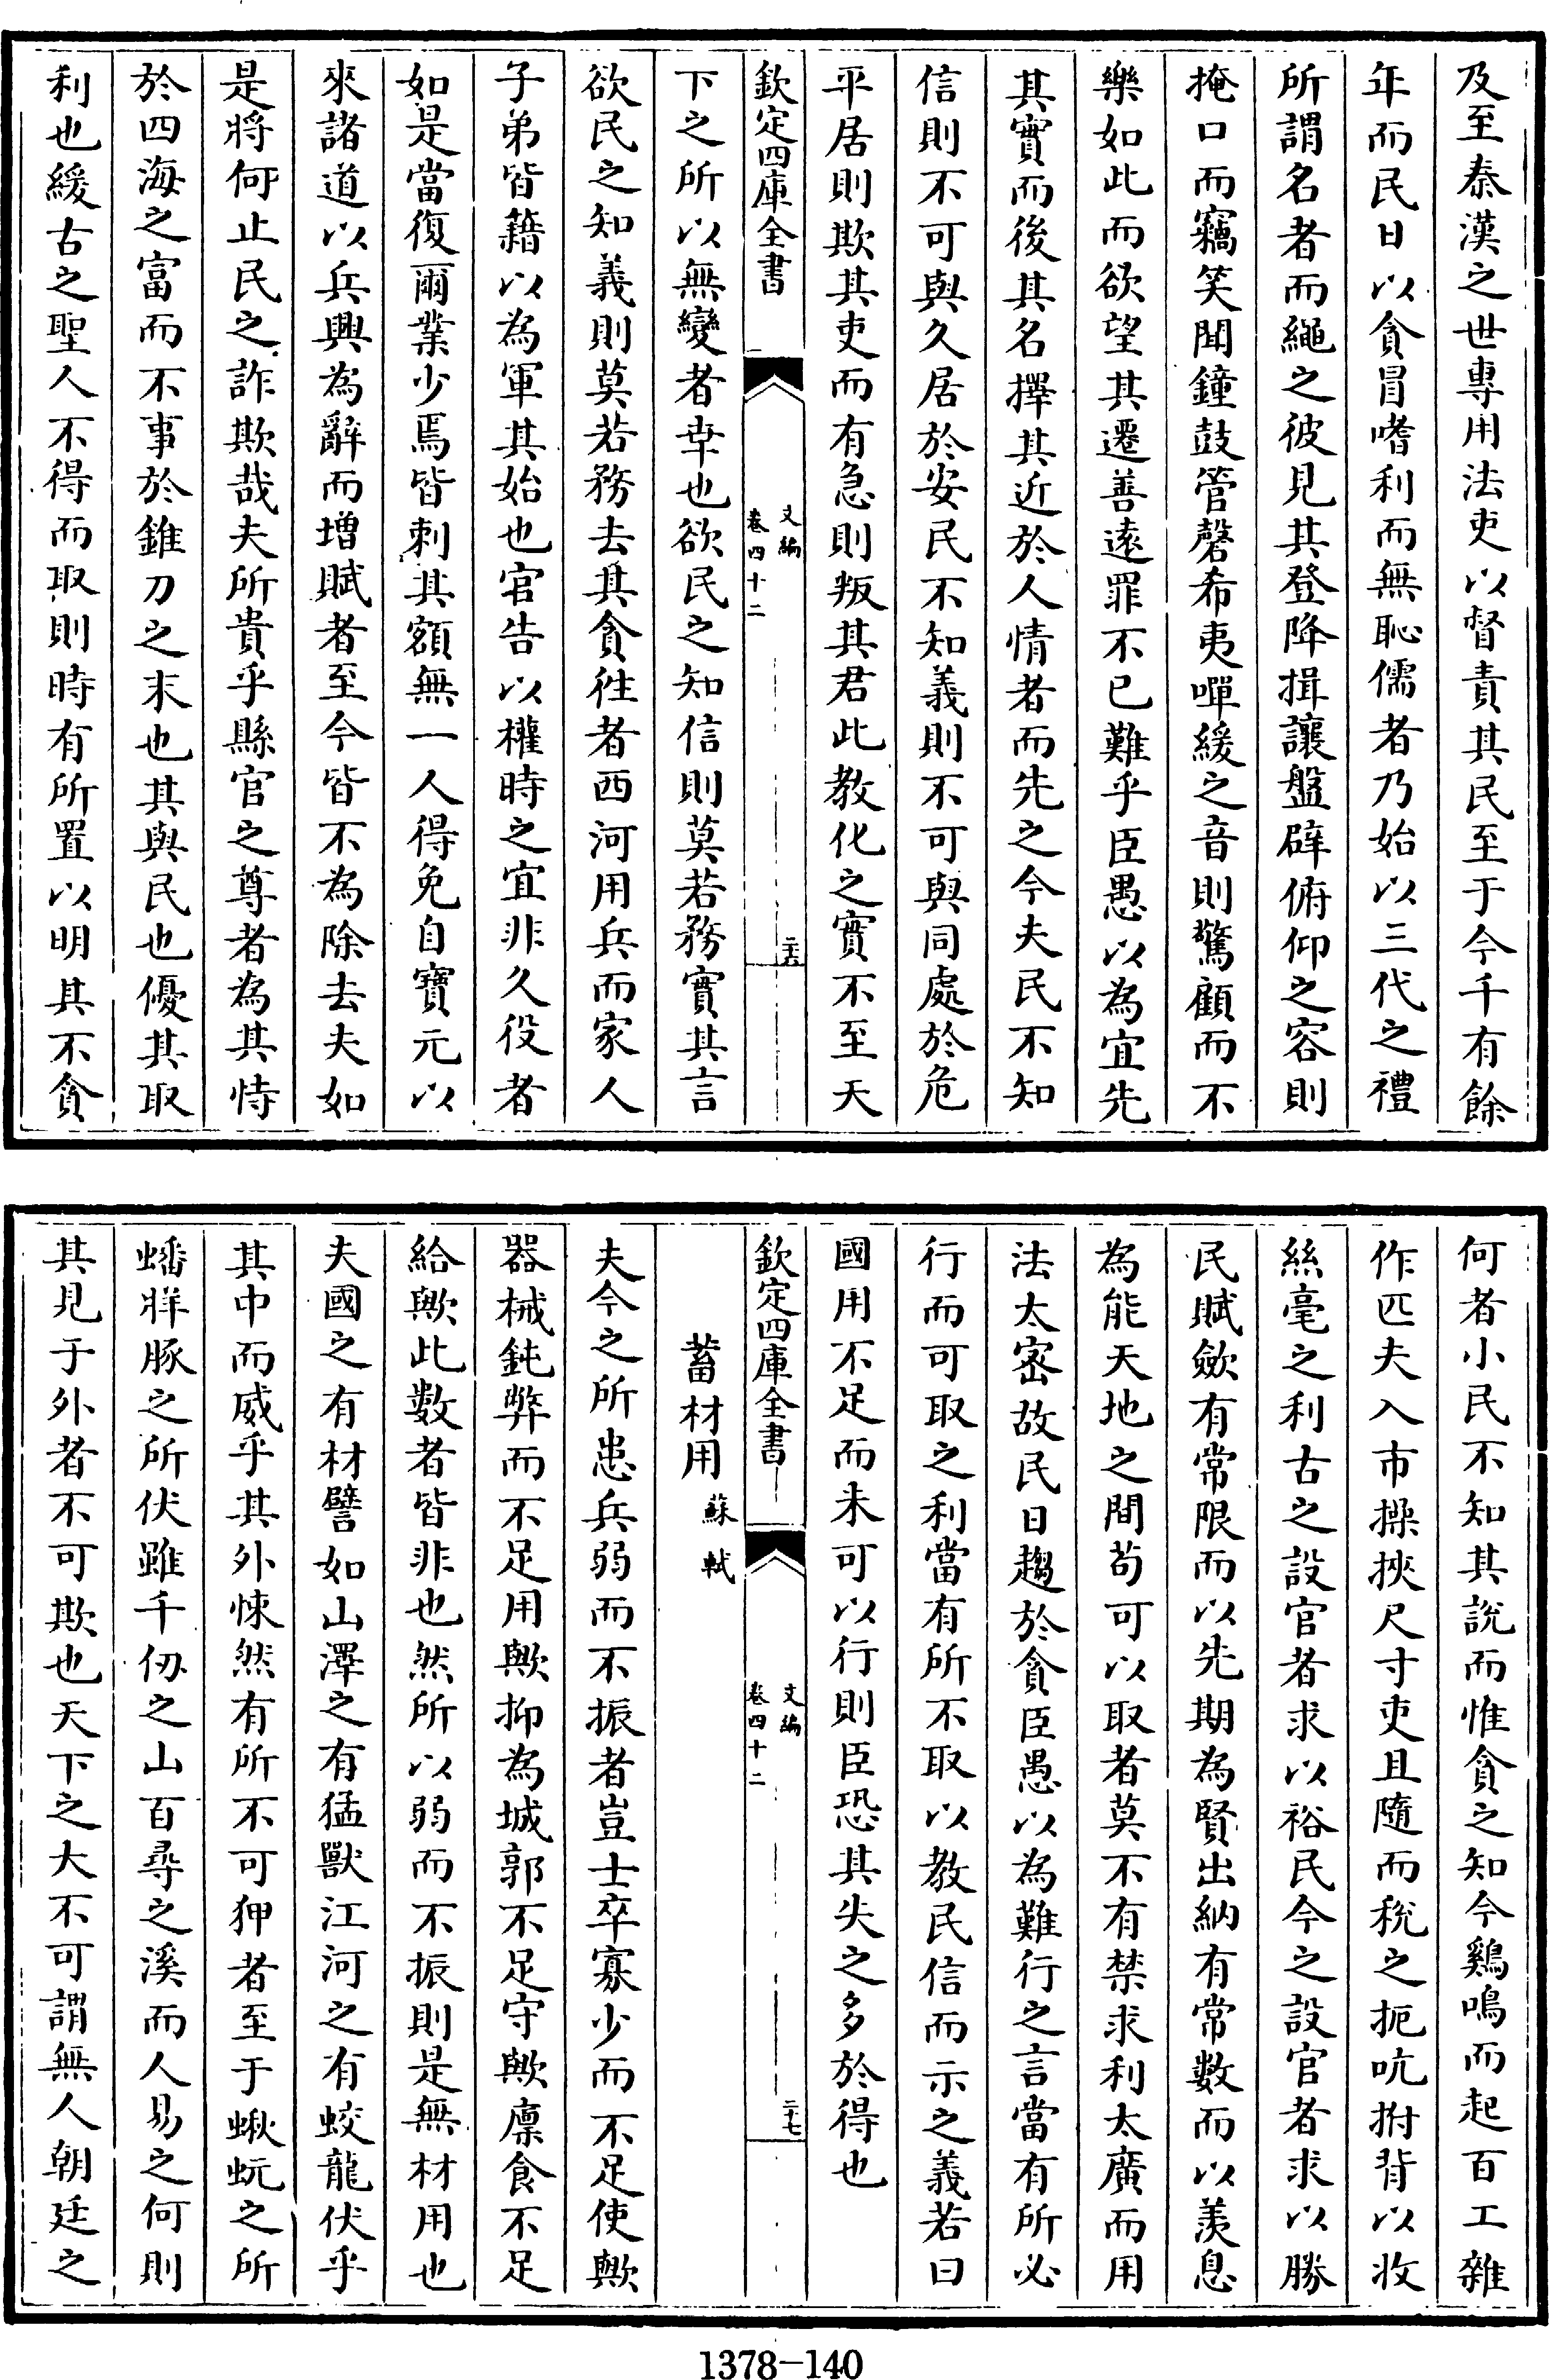 及至秦漢之世專用法吏以督責其民至于今千有餘
年而民日以貪冒嗜利而無恥儒者乃始以三代之禮
所謂名者而繩之彼見其登降揖讓盤辟俯仰之容則
掩口而竊笑聞鐘鼓管磬希夷嘽緩之音則驚顧而不
樂如此而欲望其遷善遠罪不已難乎臣愚以為宜先
其實而後其名擇其近於人情者而先之今夫民不知
信則不可與久居於安民不知義則不可與同處於危
平居則欺其吏而有急則叛其君此教化之實不至天
欽定四庫全書
文編
卷四十二
二十六
下之所以無變者幸也欲民之知信則莫若務實其言
欲民之知義則莫若務去其貪徃者西河用兵而家人
子弟皆籍以為軍其始也官告以權時之宜非久役者
如是當復爾業少焉皆刺其額無一人得免自寶元以
來諸道以兵興為辭而增賦者至今皆不為除去夫如
是將何止民之詐欺哉夫所貴乎縣官之尊者為其恃
於四海之富而不事於錐刀之末也其與民也優其取
利也緩古之聖人不得而取則時有所置以明其不貪
何者小民不知其說而惟貪之知今鷄鳴而起百工雜
作匹夫入市操挾尺寸吏且隨而稅之扼吭拊背以收
絲毫之利古之設官者求以裕民今之設官者求以勝
民賦歛有常限而以先期為賢出納有常數而以羡息
為能天地之間苟可以取者莫不有禁求利太廣而用
法太密故民日趨於貪臣愚以為難行之言當有所必
行而可取之利當有所不取以教民信而示之義若曰
國用不足而未可以行則臣恐其失之多於得也
欽定四庫全書
文編
卷四十二
二十七
蓄材用 蘇軾
夫今之所患兵弱而不振者豈士卒寡少而不足使歟
器械鈍弊而不足用歟抑為城郭不足守歟廩食不足
給歟此數者皆非也然所以弱而不振則是無材用也
夫國之有材譬如山澤之有猛獸江河之有蛟龍伏乎
其中而威乎其外悚然有所不可狎者至于蝤蚖之所
蟠牂豚之所伏雖千仞之山百尋之溪而人易之何則
其見于外者不可欺也天下之大不可謂無人朝廷之
1378-140